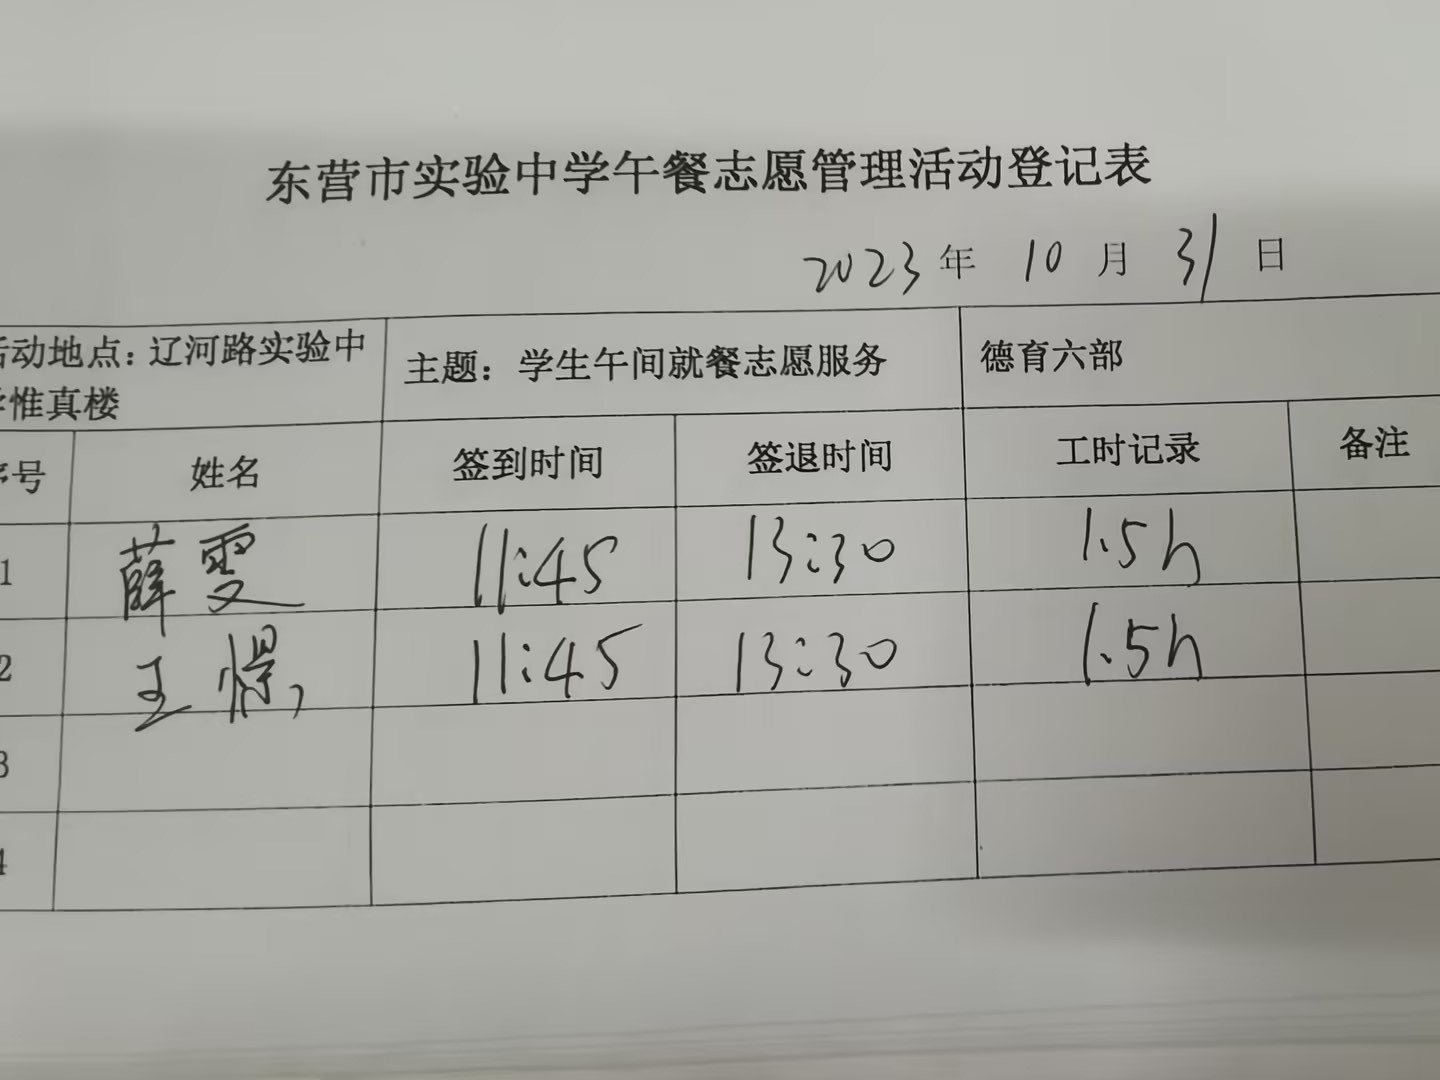 东营市实验中学午餐志愿管理活动登记表
2023 年 10 月 31 日
活动地点：辽河路实验中 主题：学生午间就餐志愿服务 德育六部
学惟真楼
序号 姓名 签到时间 签退时间 工时记录 备注
1 薛雯 11:45 13:30 1.5h
2 王 11:45 13:30 1.5h
3
4